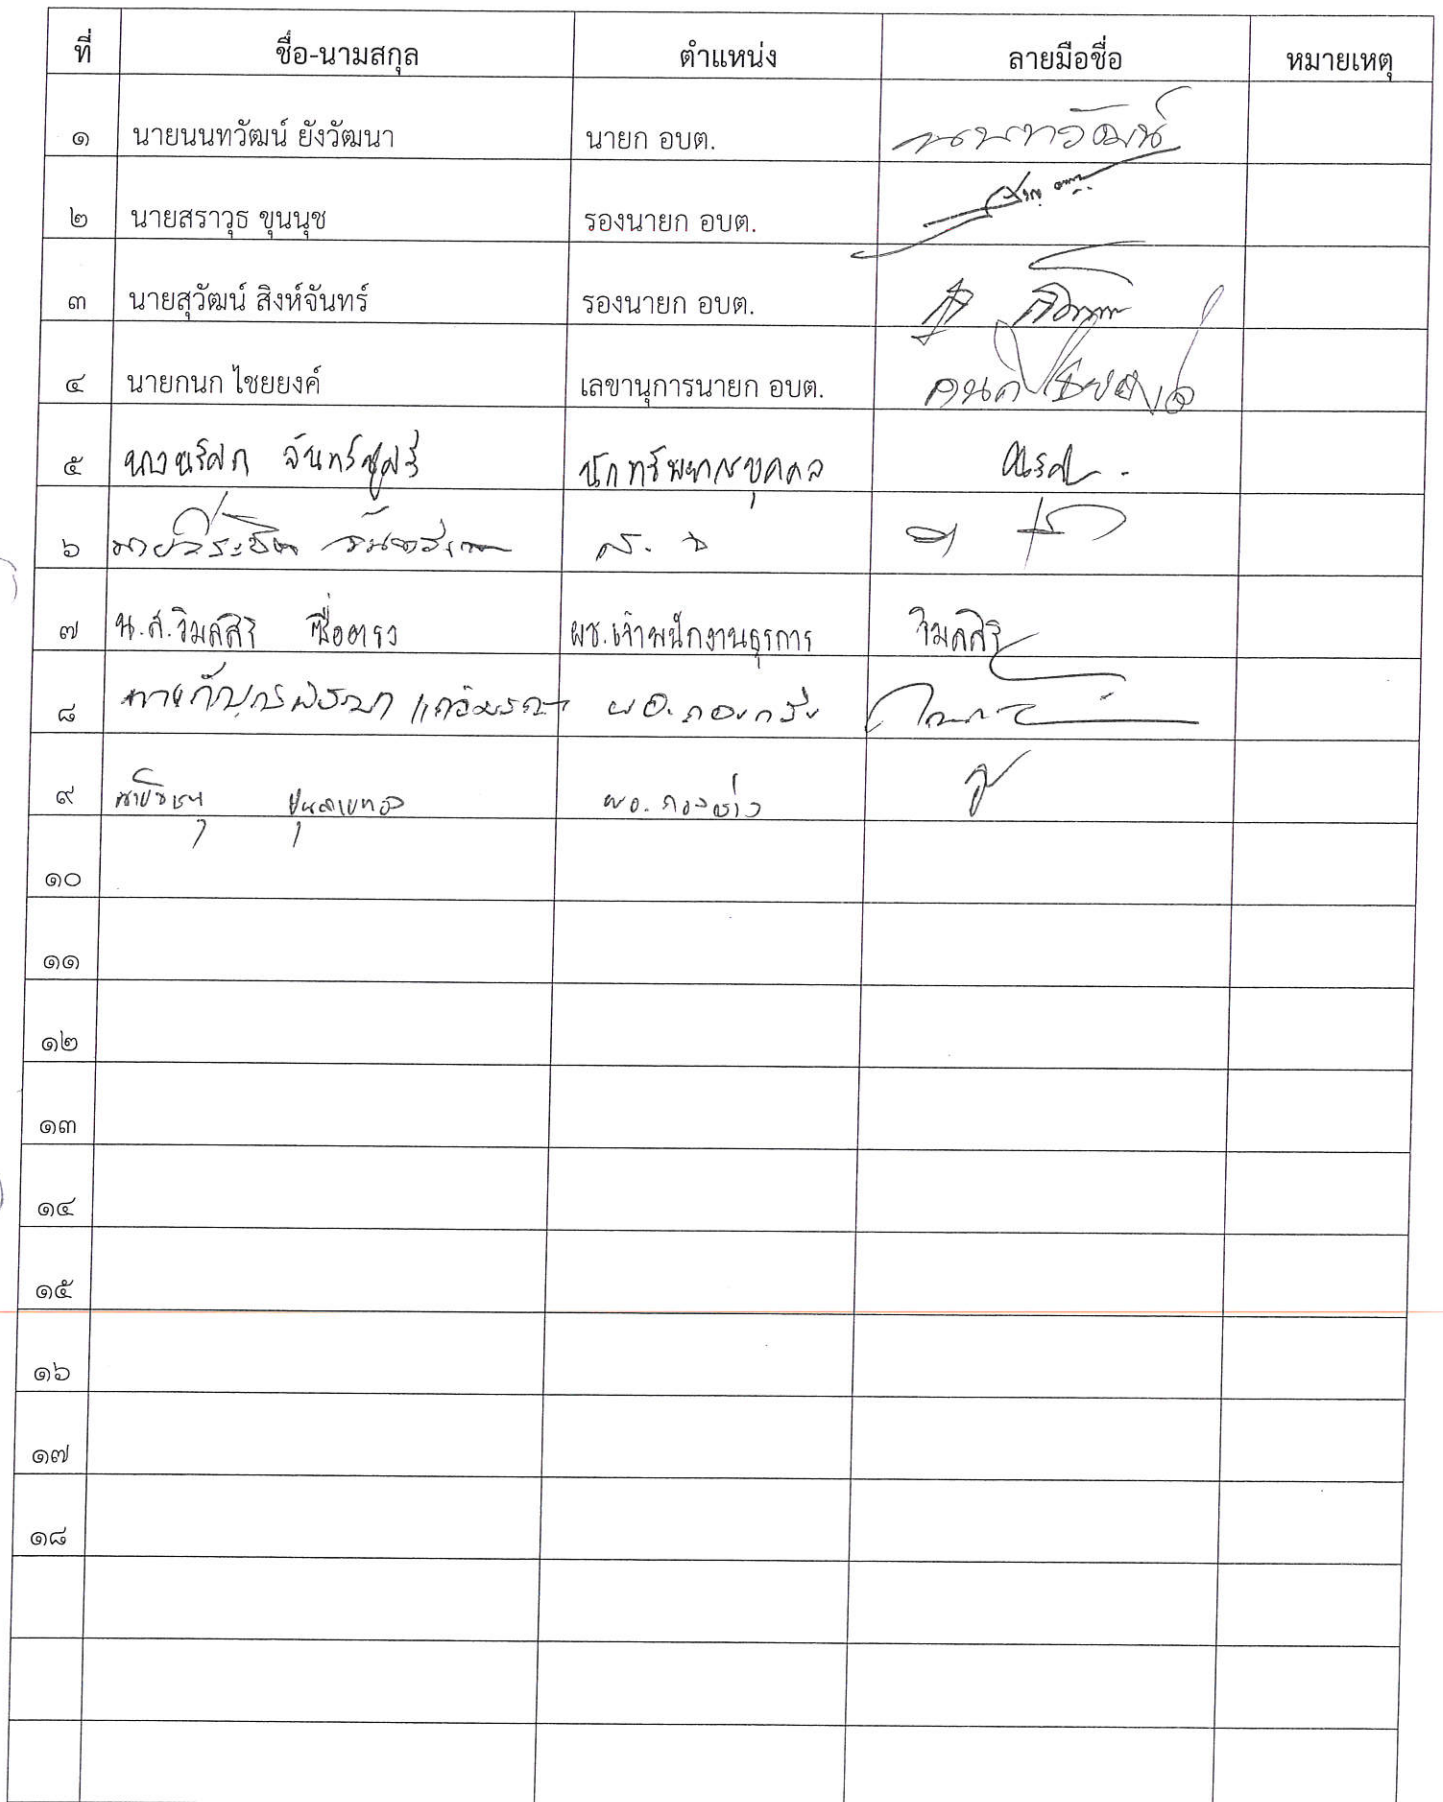 ที่ ชื่อ-นามสกุล ตำแหน่ง ลายมือชื่อ หมายเหตุ
๑ นายนนทวัฒน์ ยังวัฒนา นายก อบต. นนทวัฒน์
๒ นายสราวุธ ขุนนุช รองนายก อบต.
๓ นายสุวัฒน์ สิงห์จันทร์ รองนายก อบต.
๔ นายกนก ไชยยงค์ เลขานุการนายก อบต. กนก ไชยยงค์
๕ จันทร์ชูศรี นักทรัพยากรบุคคล
๖
๗ น.ส.วิมลสิริ ซื่อตรง ผช.เจ้าพนักงานธุรการ วิมลสิริ
๘ ผอ.กองคลัง
๙ ผอ.กองช่าง
๑๐
๑๑
๑๒
๑๓
๑๔
๑๕
๑๖
๑๗
๑๘